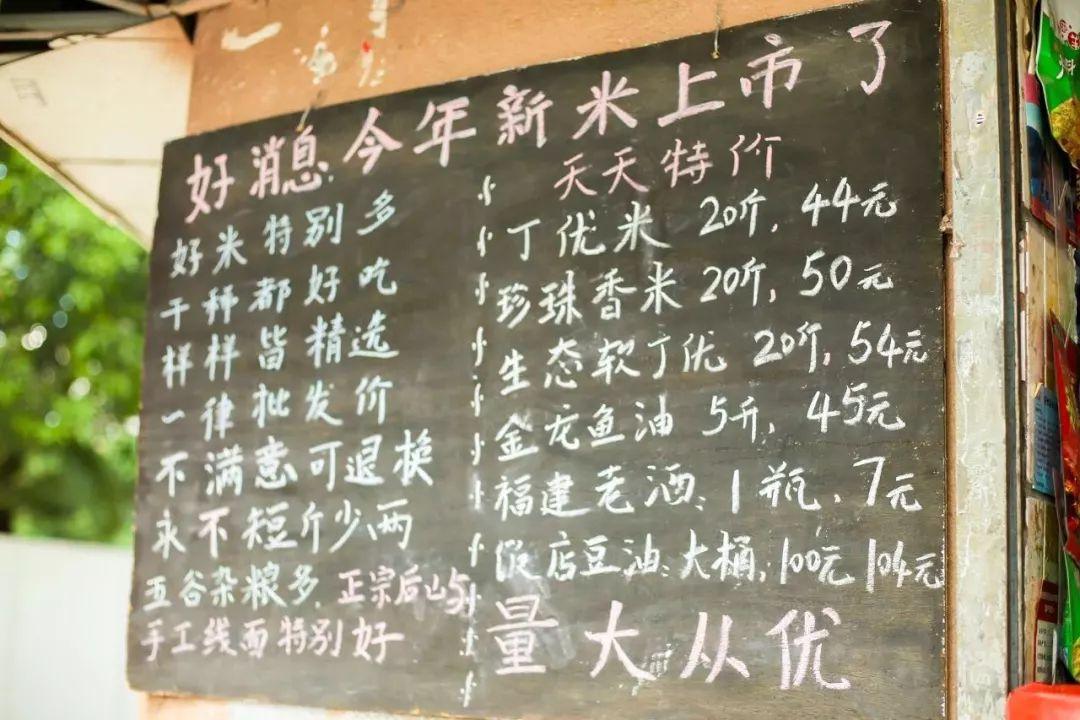 好消息.今年新米上市了
好米特别多
干种都好吃
样样皆精选
一律批发价
不满意可退换
永不短斤少两
五谷杂粮多.正宗后山与
手工线面特别好
天天特价
丁优米 20斤,44元
珍珠香米 20斤,50元
生态软丁优 20斤,54元
金龙鱼油 5升,45元
福建老酒、1瓶、7元
店豆油:大桶,100元 104元
量大从优